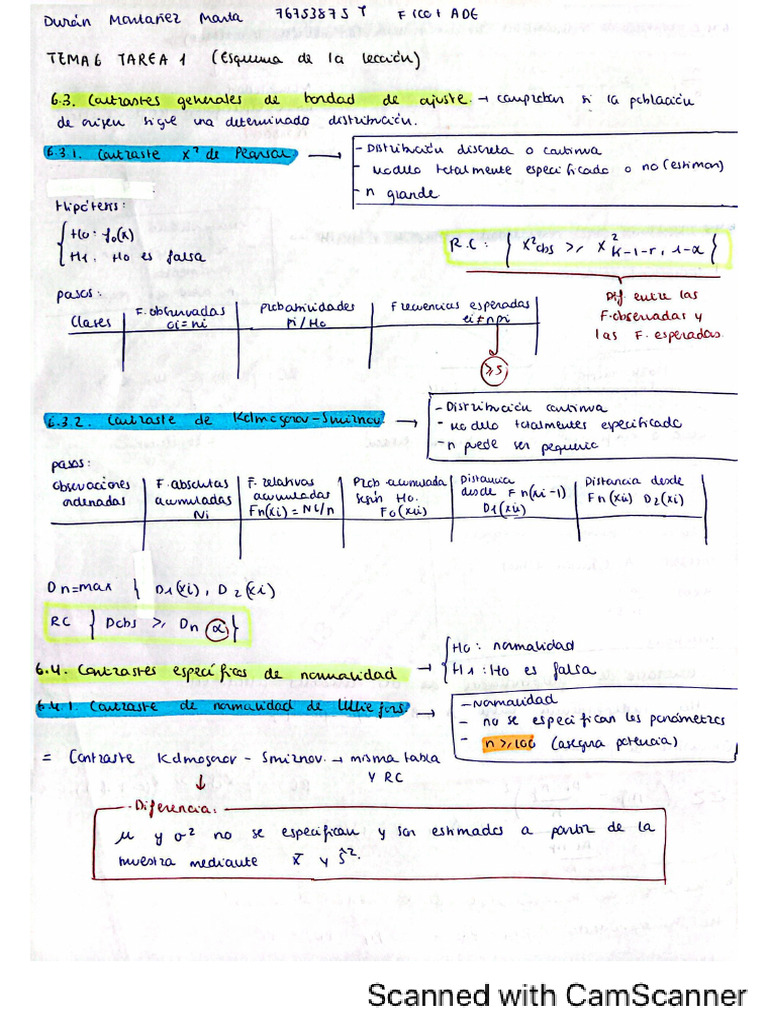 Durán Montañez Marta 76753875 T FICO1 ADE
TEMA 6 TAREA 1 (Esquema de la lección)
6.3. Contrastes generales de bondad de ajuste. → comprueban si la población
de origen sigue una determinada distribución.
6.3.1. Contraste X² de Pearson →
- Distribución discreta o continua
- Modelo totalmente especificado o no (estiman)
- n grande
Hipótesis:
{ H0: f0(x)
H1: H0 es falsa
R.C: { X²obs ≥ X²k-1-r, 1-α }
Dif. entre las
F. observadas y
las F. esperadas.
pasos:
Clases | F. observadas oi = ni | Probabilidades pi / H0 | Frecuencias esperadas ei = npi
≥5
6.3.2. Contraste de Kolmogorov-Smirnov →
- Distribución continua
- Modelo totalmente especificado
- n puede ser pequeño
pasos:
observaciones ordenadas | F. absolutas acumuladas Ni | F. relativas acumuladas Fn(xi) = Ni/n | Prob acumulada según H0. F0(xi) | Distancia desde Fn(xi-1) D1(xi) | Distancia desde Fn(xi) D2(xi)
Dn = max { D1(xi), D2(xi)
RC { Dobs ≥ Dn α }
6.4. Contrastes específicos de normalidad → { H0: normalidad
H1: H0 es falsa
6.4.1. Contraste de normalidad de Lilliefors →
- Normalidad
- no se especifican los parámetros
- n ≥ 100 (asegura potencia)
= Contraste Kolmogorov - Smirnov → misma tabla
y RC
Diferencia:
μ y σ² no se especifican y son estimados a partir de la
muestra mediante x̄ y ŝ².
Scanned with CamScanner